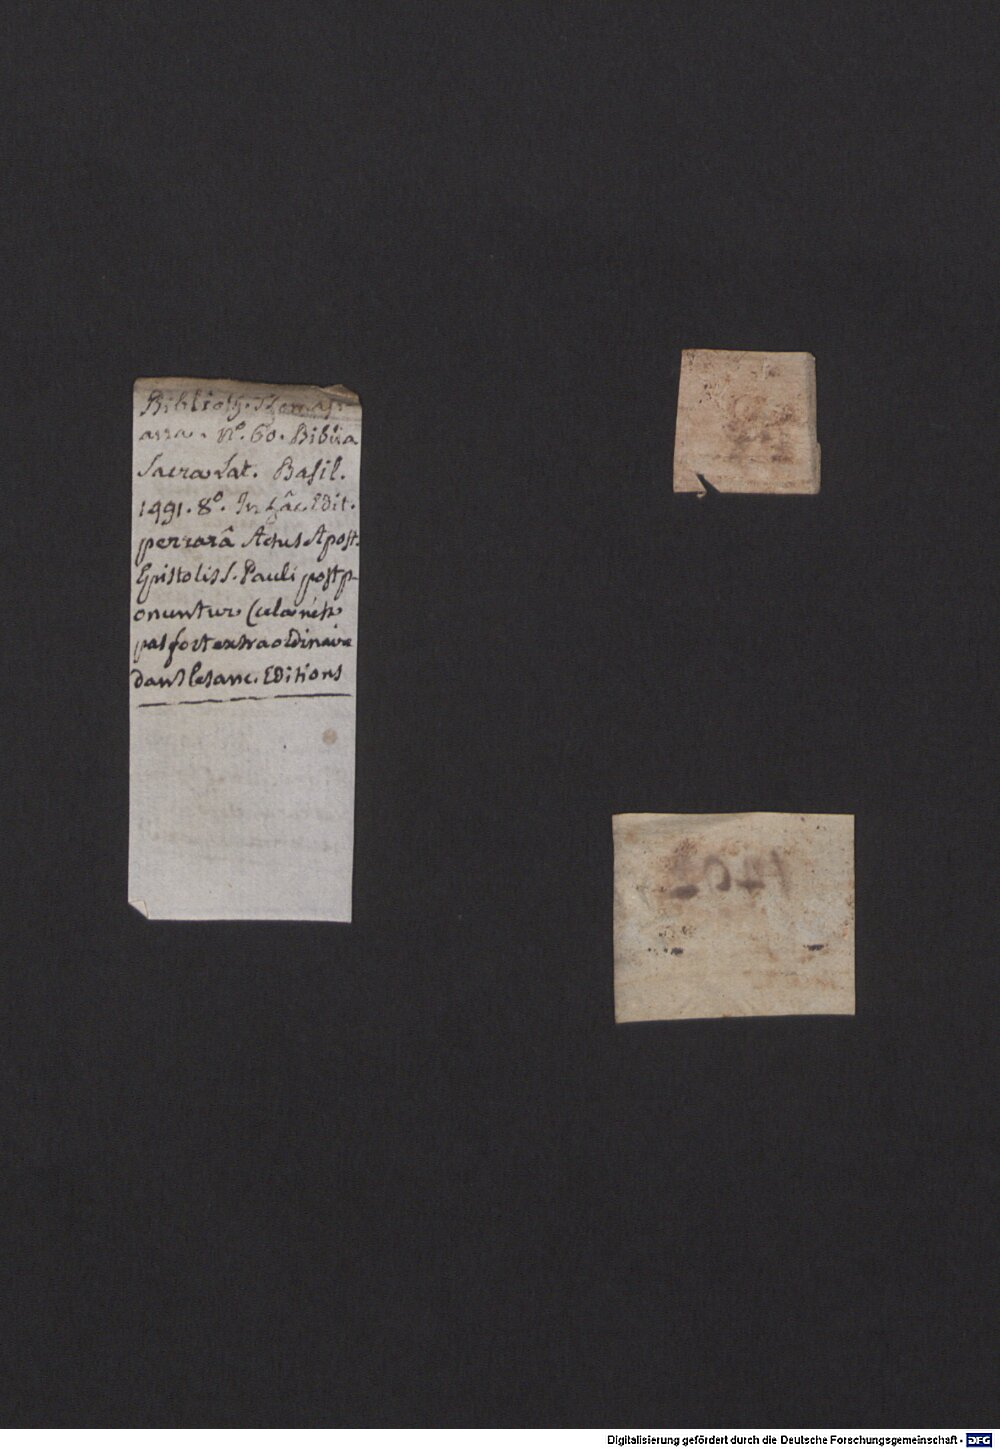 Biblioth. Thomas-
iana. n°. 60. Biblia
Sacra Lat. Basil.
1491. 8°. In hâc Edit.
perrarâ Actus Apost.
Epistolis S. Pauli postp-
onuntur (cela n'est
pas fort extraordinaire
dans les anc. Editions
Digitalisierung gefördert durch die Deutsche Forschungsgemeinschaft - DFG